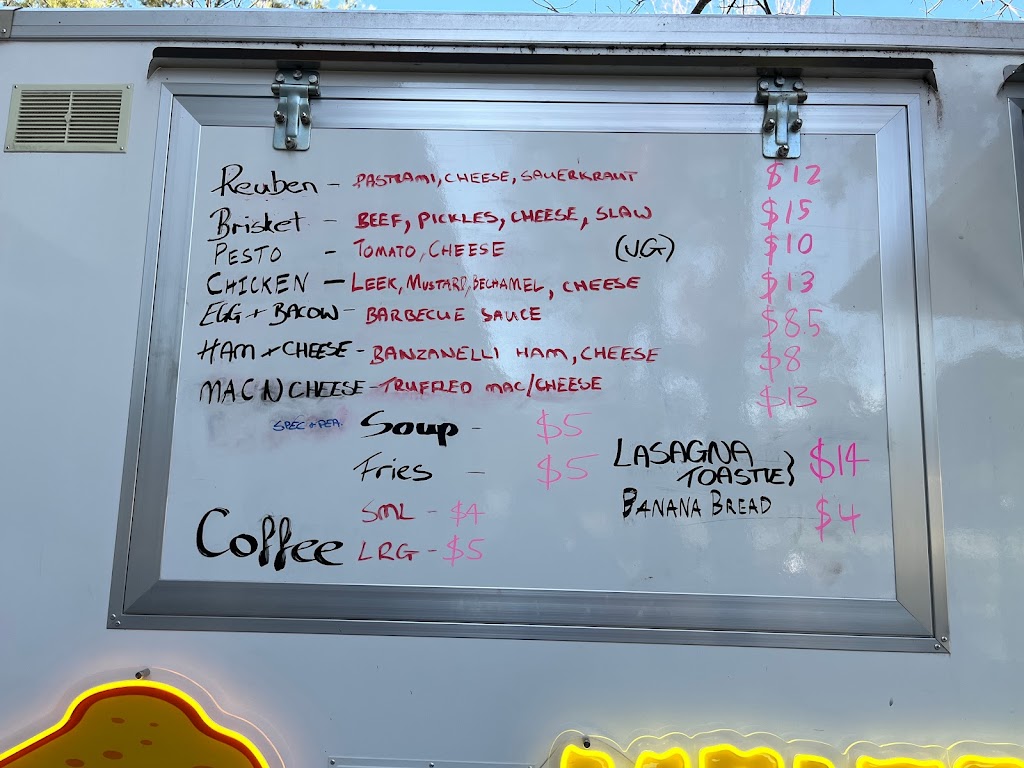 Reuben - PASTRAMI, CHEESE, SAUERKRAUT $12
Brisket - BEEF, PICKLES, CHEESE, SLAW $15
PESTO - TOMATO, CHEESE (VG) $10
CHICKEN - LEEK, MUSTARD, BECHAMEL, CHEESE $13
EGG + BACON - BARBECUE SAUCE $8.5
HAM + CHEESE - BANZANELLI HAM, CHEESE $8
MAC N CHEESE - TRUFFLED MAC/CHEESE $13
Soup - $5
Fries - $5
LASAGNA
TOASTIE} $14
BANANA BREAD $4
Coffee
SML - $4
LRG - $5